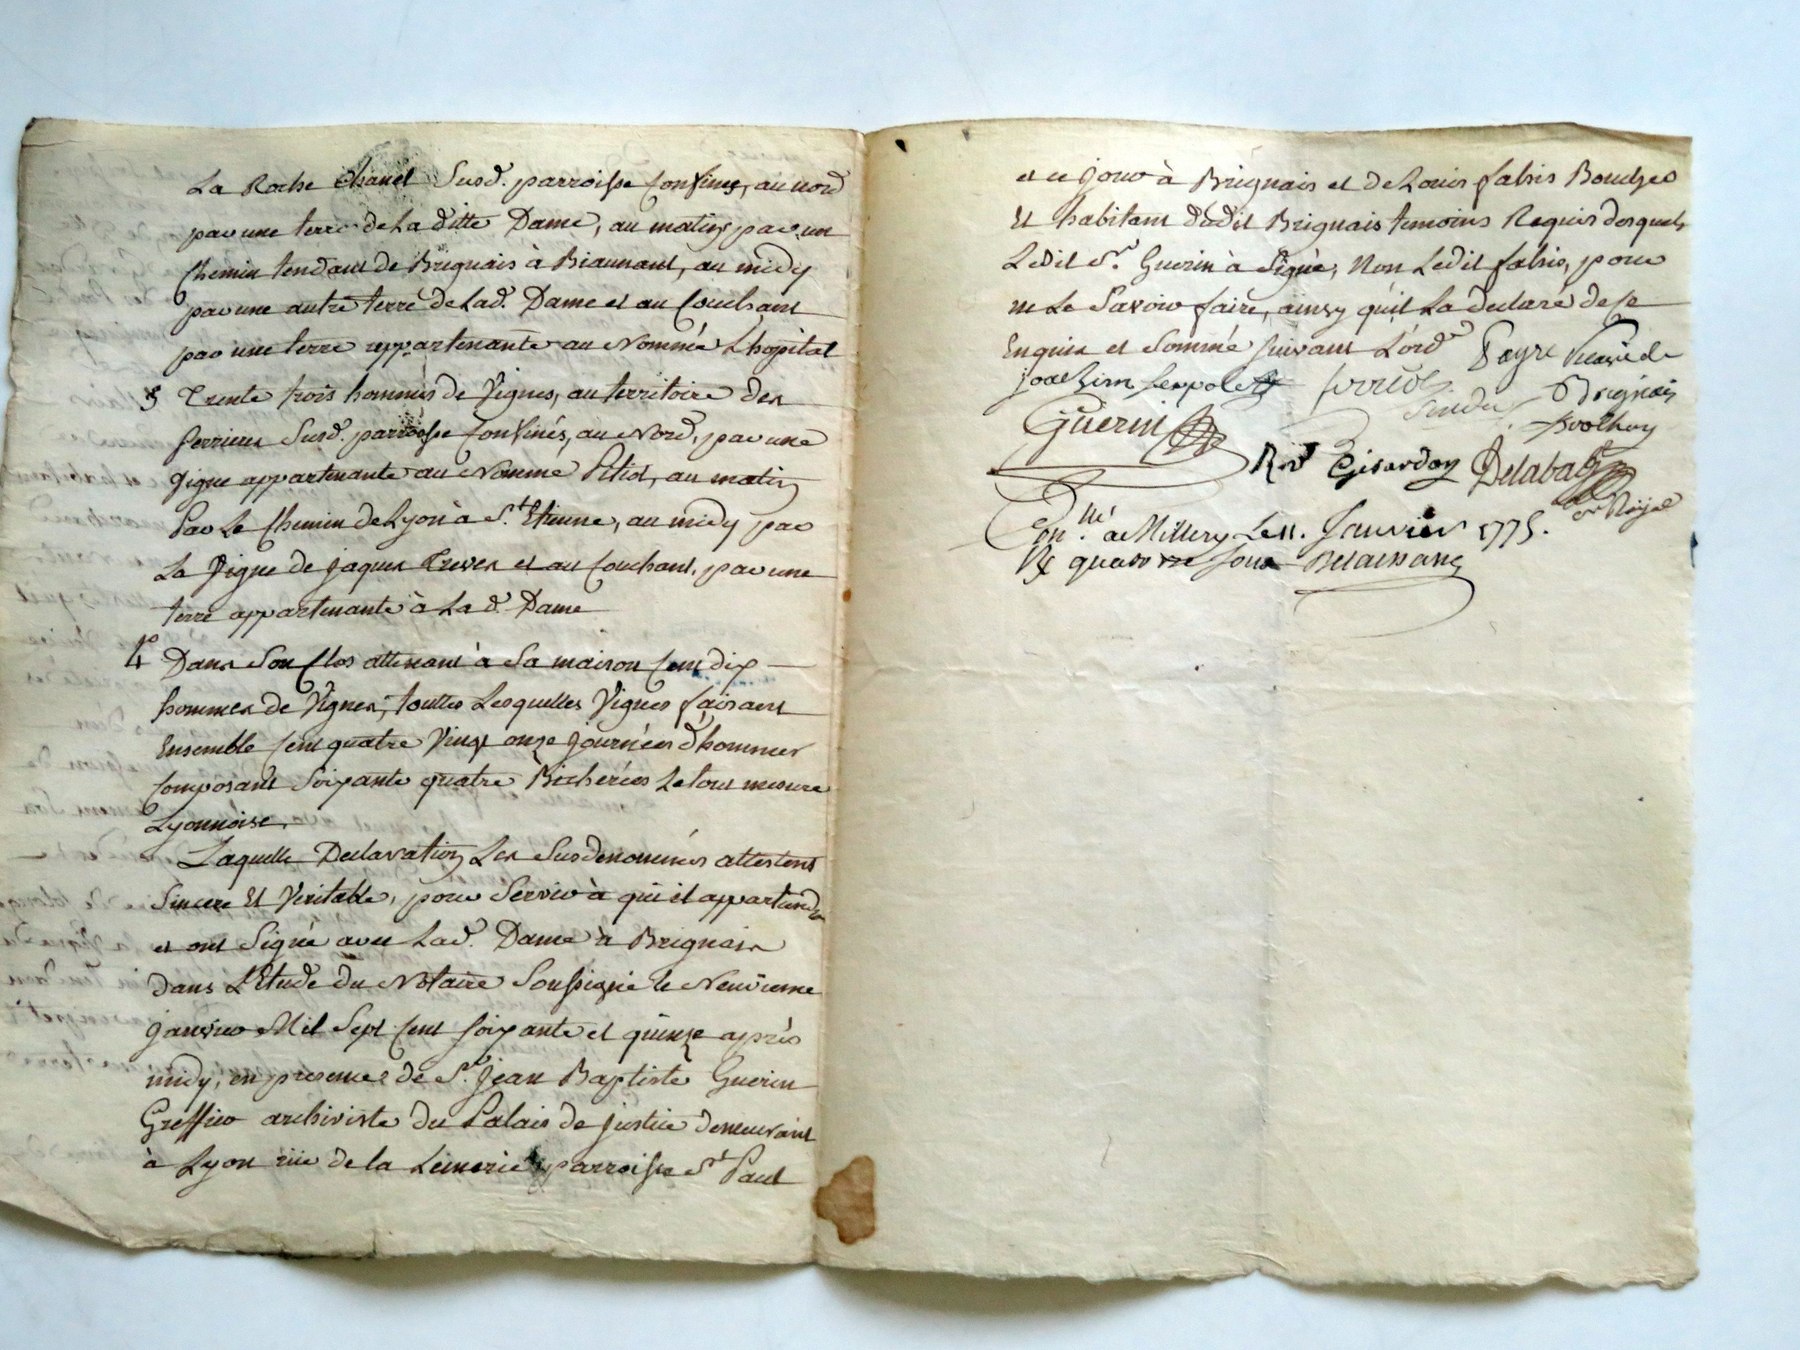 La Roche Chanel Susd. parroisse Confiné, au nord
par une terre de La ditte Dame, au matin par un
Chemin tendant de Brignais à Beaunant, au midy
par une autre terre de Lad. Dame et au Couchant
par une terre appartenante au Nommé L'hopital
3 Trente trois hommes de Vignes, au territoire des
ferrieres Susd. parroisse Confinés, au Nord, par une
Vigne appartenante au Nommé Pitiot, au matin
Par Le Chemin de Lyon à St. Etienne, au midy par
La Vigne de Jaques Treves et au Couchant, par une
terre appartenante à La d. Dame
4° Dans Son Clos attenant à Sa maison Cent dix
hommes de Vignes, touttes Lesquelles Vignes faisant
Ensemble Cent quatre Vingt onze journées d'hommes
Composant Soixante quatre Bicherées Le tout mesure
Lyonnoise.
Laquelle Declaration Les Susdenommés attestent
Sincere Et Veritable, pour Servir à qui il appartiendra
et ont Signé avec Lad. Dame à Brignais
Dans L'Etude du Notaire Soussigné le Neuvieme
janvier Mil Sept Cent soixante et quinze après
midy, en presence de Sr. Jean Baptiste Guerin
Greffier archiviste du Palais de justice demeurant
à Lyon rüe de la Lainerie parroisse St Paul
et ce jour à Brignais et de Louis falsis Boucher
Et habitant dudit Brignais temoins Requis desquels
Ledit Sr. Guerin à Signé, Non Ledit falsis, pour
ne Le Savoir faire, ainsy qu'il La declaré de Ce
Enquis et Sommé suivant L'ord.e Fayre Vicaire de
Joachim Sindic Brignais
Guerin
Girardon Delabat
Con.lé a Millery Le 11. Janvier 1775.
Rx quatorze sous Delaissang